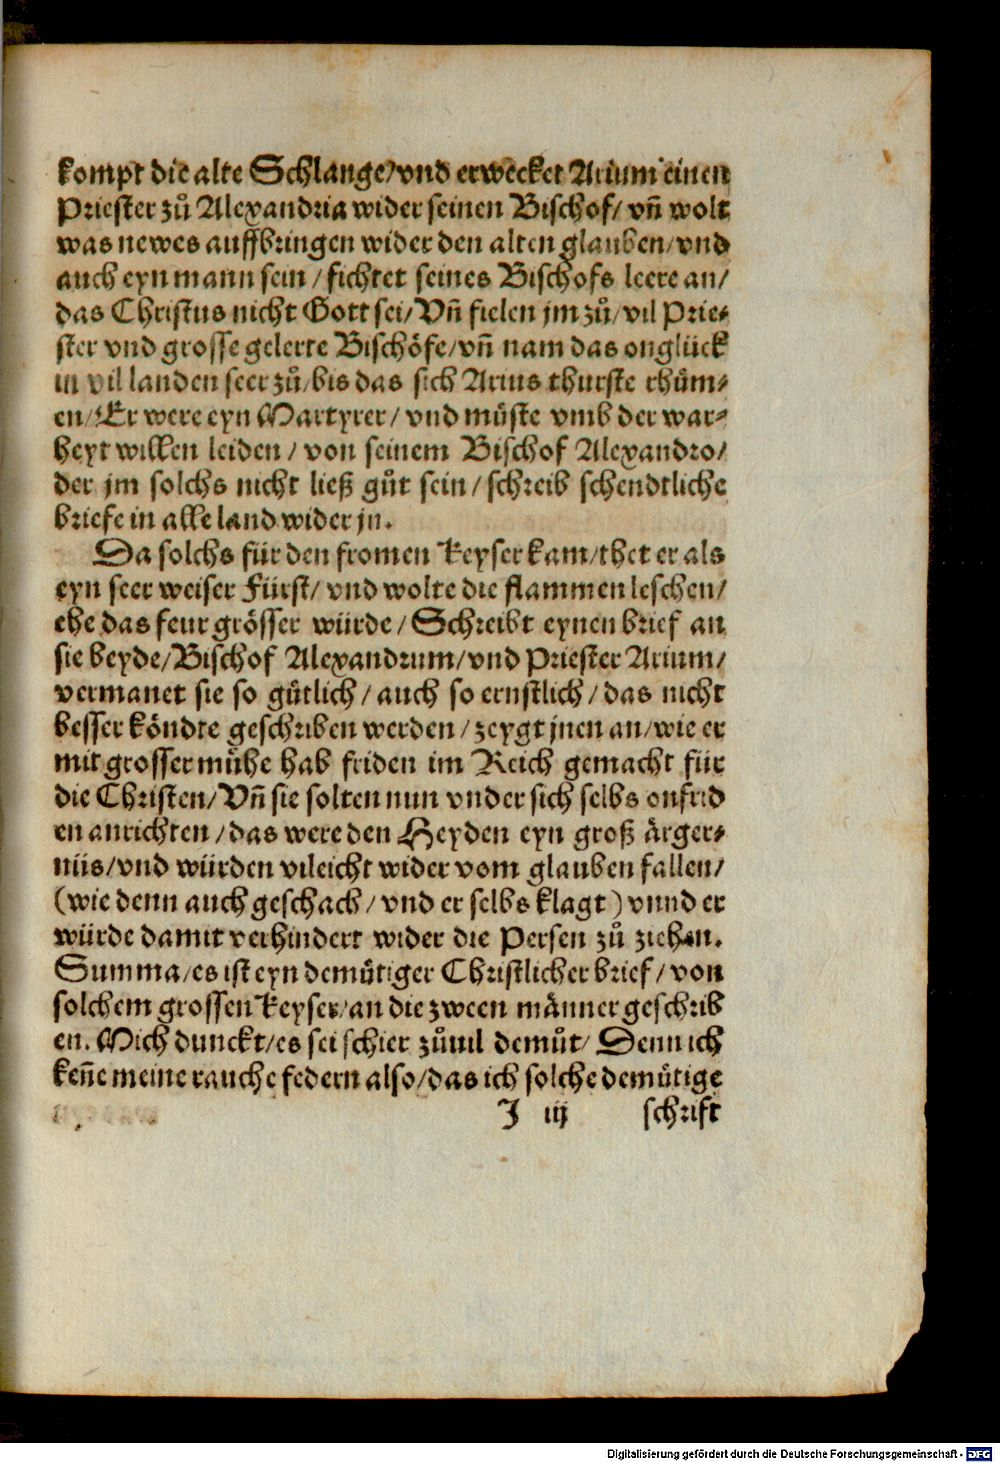 kompt die alte Schlange/vnd erwecket Arium einen
Priester zuͦ Alexandria wider seinen Bischof/ vñ wolt
was newes auffbringen wider den alten glauben/vnd
auch eyn mann sein/fichtet seines Bischofs leere an/
das Christus nicht Gott sei/Vñ fielen jm zuͦ/vil Prie⸗
ster vnd grosse gelerte Bischöfe/vñ nam das onglück
in vil landen seer zuͦ/bis das sich Arius thurste rhüm⸗
en/Er were eyn Martyrer/vnd müste vmb der war⸗
heyt willen leiden/von seinem Bischof Alexandro/
der jm solchs nicht ließ guͦt sein/schreib schendtliche
briefe in alle land wider jn.
Da solchs für den fromen Keyser kam/thet er als
eyn seer weiser Fürst/vnd wolte die flammen leschen/
ehe das feur grösser würde/Schreibt eynen brief an
sie beyde/Bischof Alexandrum/vnd Priester Arium/
vermanet sie so gütlich/auch so ernstlich/das nicht
besser köndte geschriben werden/zeygt jnen an/wie er
mit grosser mühe hab friden im Reich gemacht für
die Christen/Vñ sie solten nun vnder sich selbs onfrid
en anrichten/das were den Heyden eyn groß ärger⸗
niis/vnd würden vileicht wider vom glauben fallen/
(wie denn auch geschach/vnd er selbs klagt) vnnd er
würde damit verhindert wider die Persen zuͦ ziehen.
Summa/es ist eyn demütiger Christlicher brief/von
solchem grossen Keyser/an die zween männer geschrib
en. Mich dunckt/es sei schier zuͦuil demuͦt/Denn ich
keñe meine rauche federn also/das ich solche demütige
J iij schrift
Digitalisierung gefördert durch die Deutsche Forschungsgemeinschaft - DFG